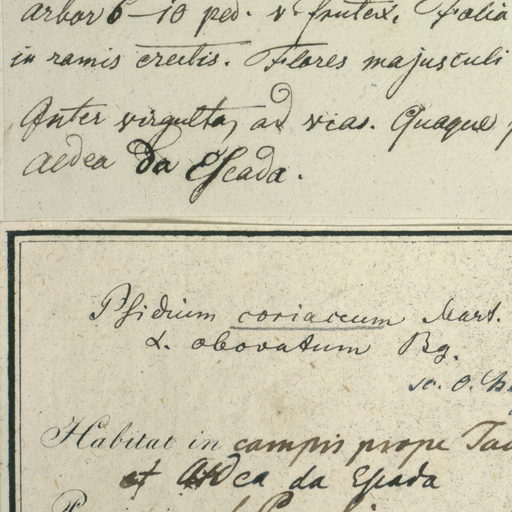 arbor 6-10 ped. v. frutex. Folia
in ramis erectis. Flores majusculi
Inter virgulta, ad vias. Quaque
aedea da Escada.
Psidium coriaceum Mart.
α. obovatum Bg.
sc. O.
Habitat in campis prope
et Aldea da Escada